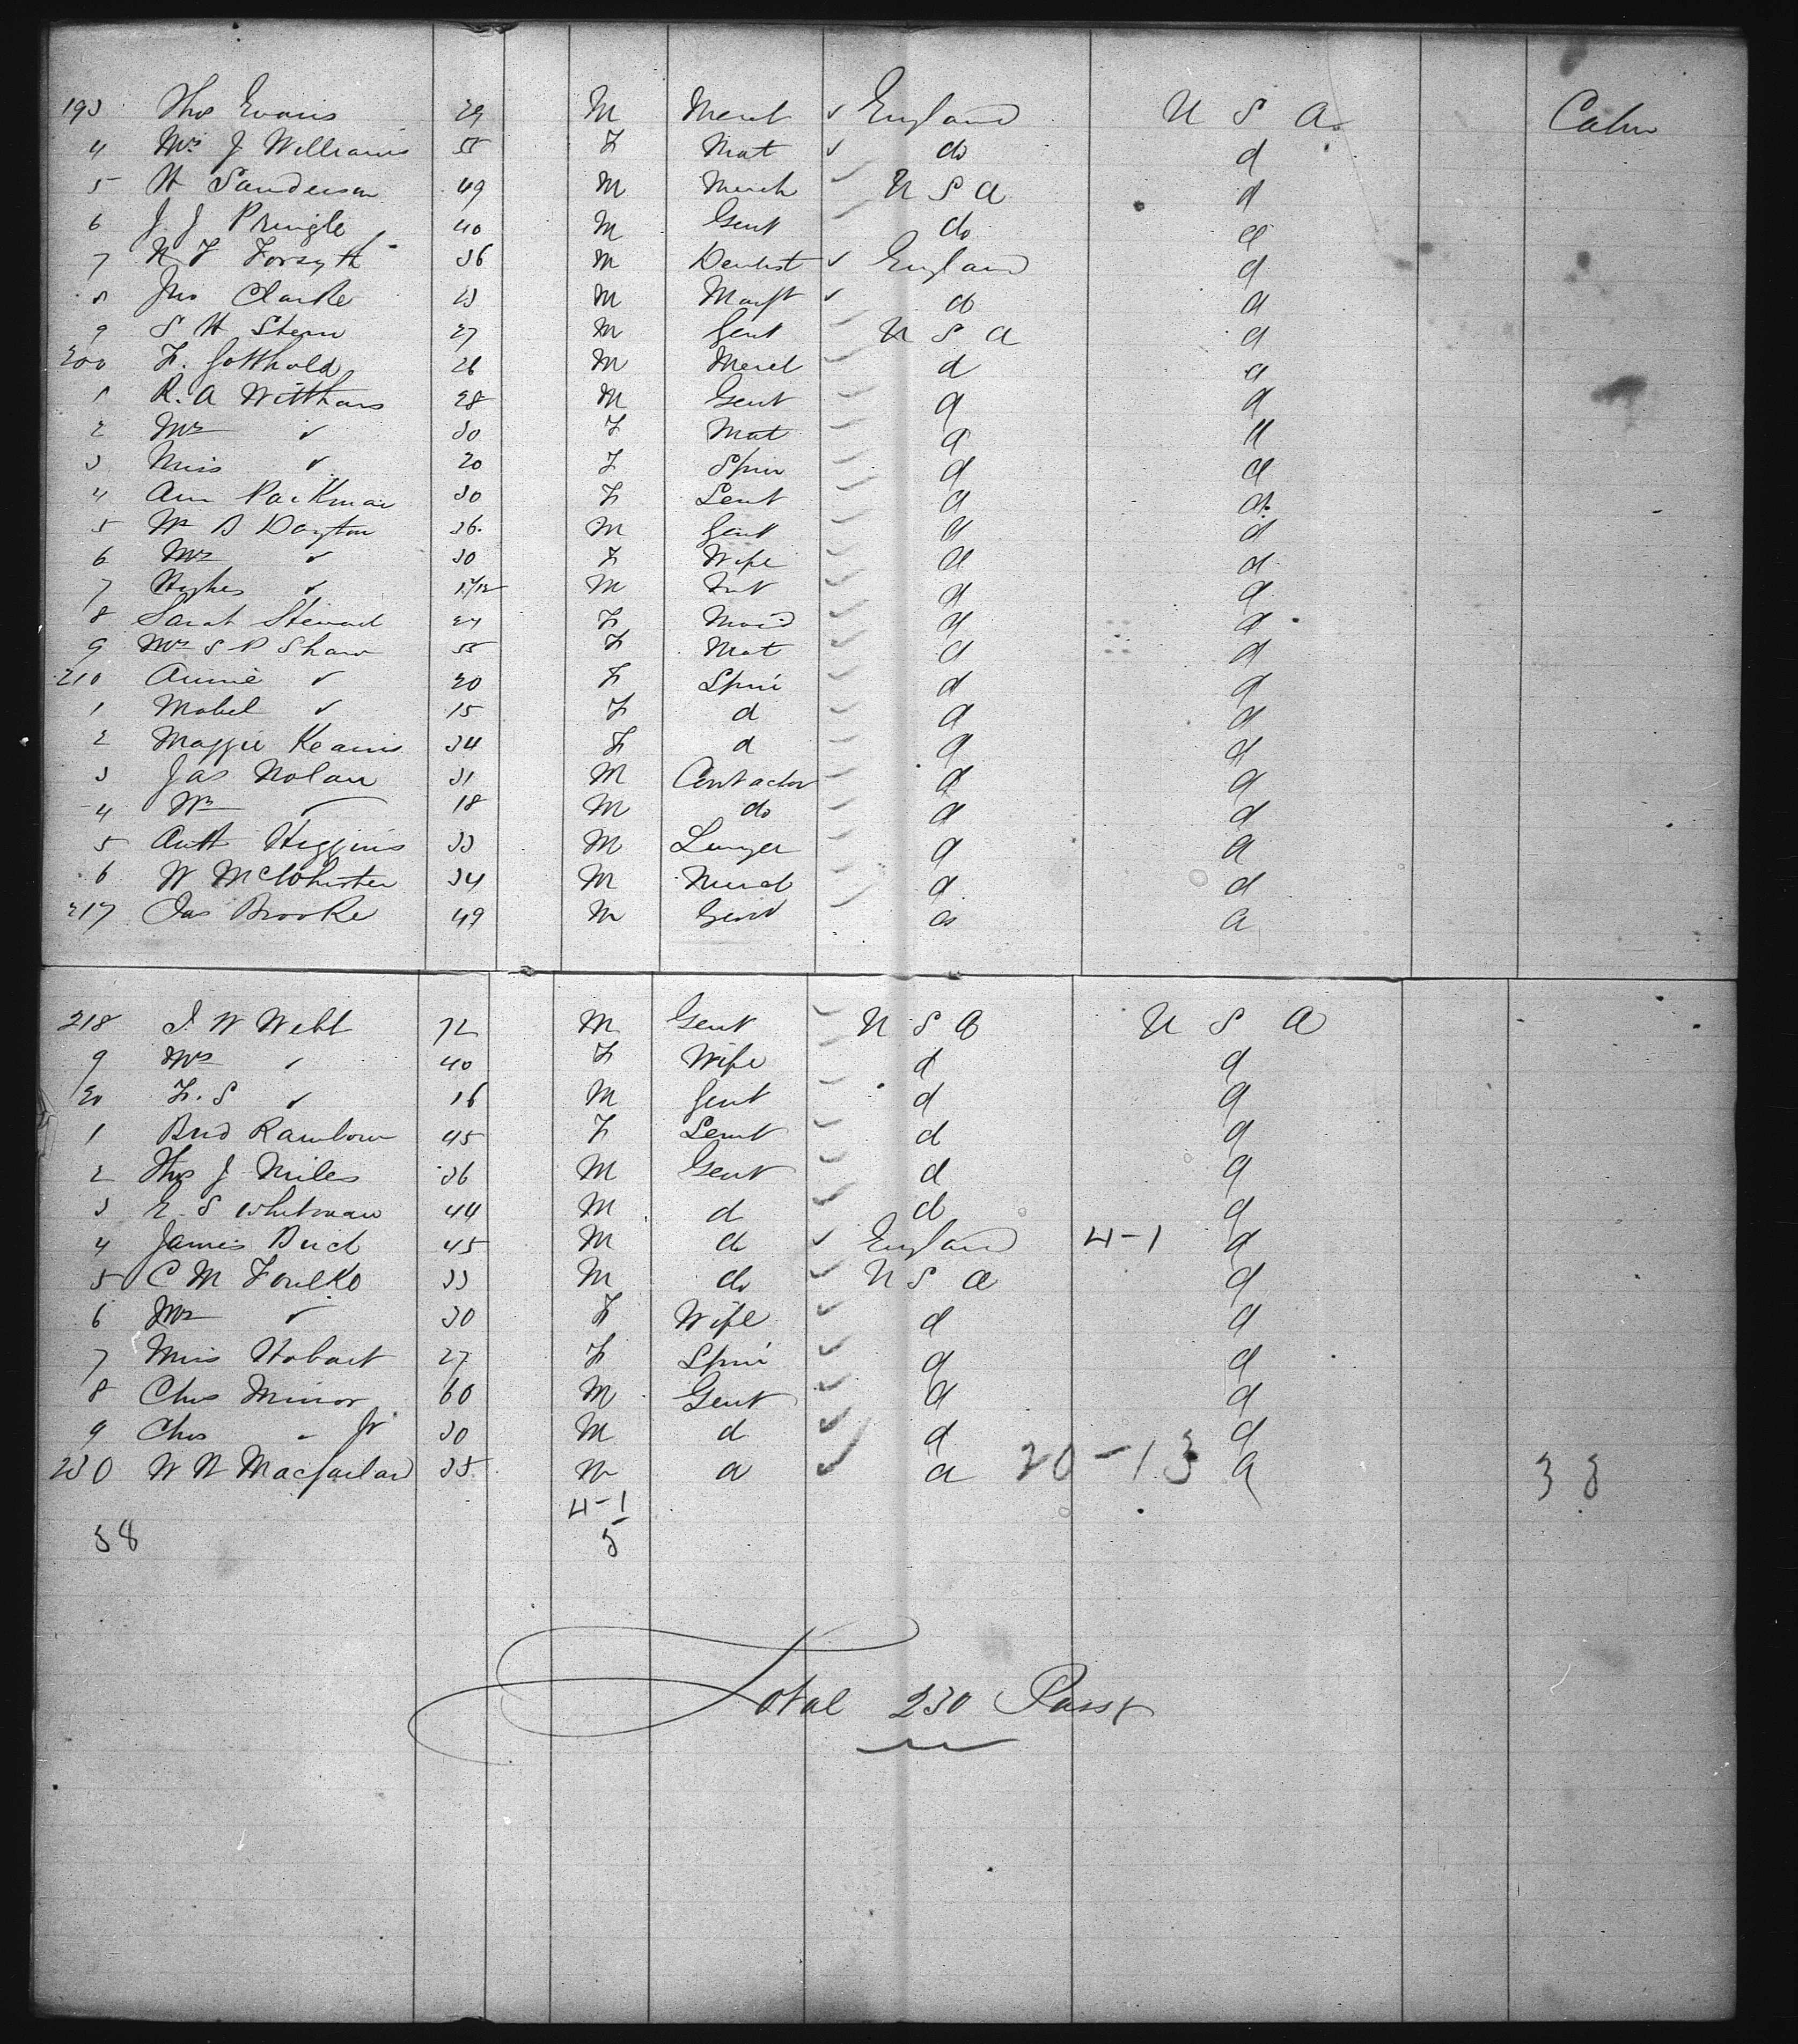 193 Thos Evans 29 M Mercht ✓ England U S A Cabin
4 Mrs J Williams 55 F Mat ✓ do d
5 H Sanderson 49 M Merch ✓ U S A d
6 J. J Pringle 40 M Gent ✓ do d
7 N F Forsyth 36 M Dentist ✓ England d
8 Jno Clarke 23 M Manft ✓ do d
9 S H Stern 27 M Gent ✓ U S A d
200 F. Gotthold 26 M Merct ✓ d d
1 R. A Witthaus 28 M Gent ✓ d d
2 Mrs ✓ 30 F Mat ✓ d d
3 Miss ✓ 20 F Spin ✓ d d
4 Ann Packman 30 F Sent ✓ d do
5 Wm B Dayton 36 M Gent ✓ d d
6 Mrs ✓ 30 F Wife ✓ d d
7 Hughes ✓ M Inft ✓ d d
8 Sarah Steward 24 F Maid ✓ d d
9 Mrs S P Shaw 55 F Mat ✓ d d
210 Annie ✓ 20 F Spin ✓ d d
1 Mabel ✓ 15 F d ✓ d d
2 Maggie Kearns 34 F d ✓ d d
3 Jas Nolan 31 M Contactor ✓ d d
4 Wm ✓ 18 M do ✓ d d
5 Anth Higgins 33 M Lawyer ✓ d d
6 W McWhirter 34 M Merct ✓ d d
217 Jas Brooke 49 M Gent ✓ do d
218 J. W Webb 72 M Gent ✓ U S A U S A
9 Mrs ✓ 40 F Wife ✓ d d
20 F. S ✓ 16 M Gent ✓ d d
1 Brid Rambow 45 F Sernt ✓ d d
2 Thos J Miles 36 M Gent ✓ d d
3 E. S Whitman 44 M d ✓ d d
4 James Bird 45 M do ✓ England 4-1 d
5 C M Foulke 33 M do ✓ U S A d
6 Mrs ✓ 30 F Wife ✓ d d
7 Miss Hobart 27 F Spin ✓ d d
8 Chas Minor 60 M Gent ✓ d d
9 Chas " Jr 30 M d ✓ d d
230 W N Macfarlan 35 M d ✓ d 20-13 d 38
4-1
38 5
Total 230 Passr